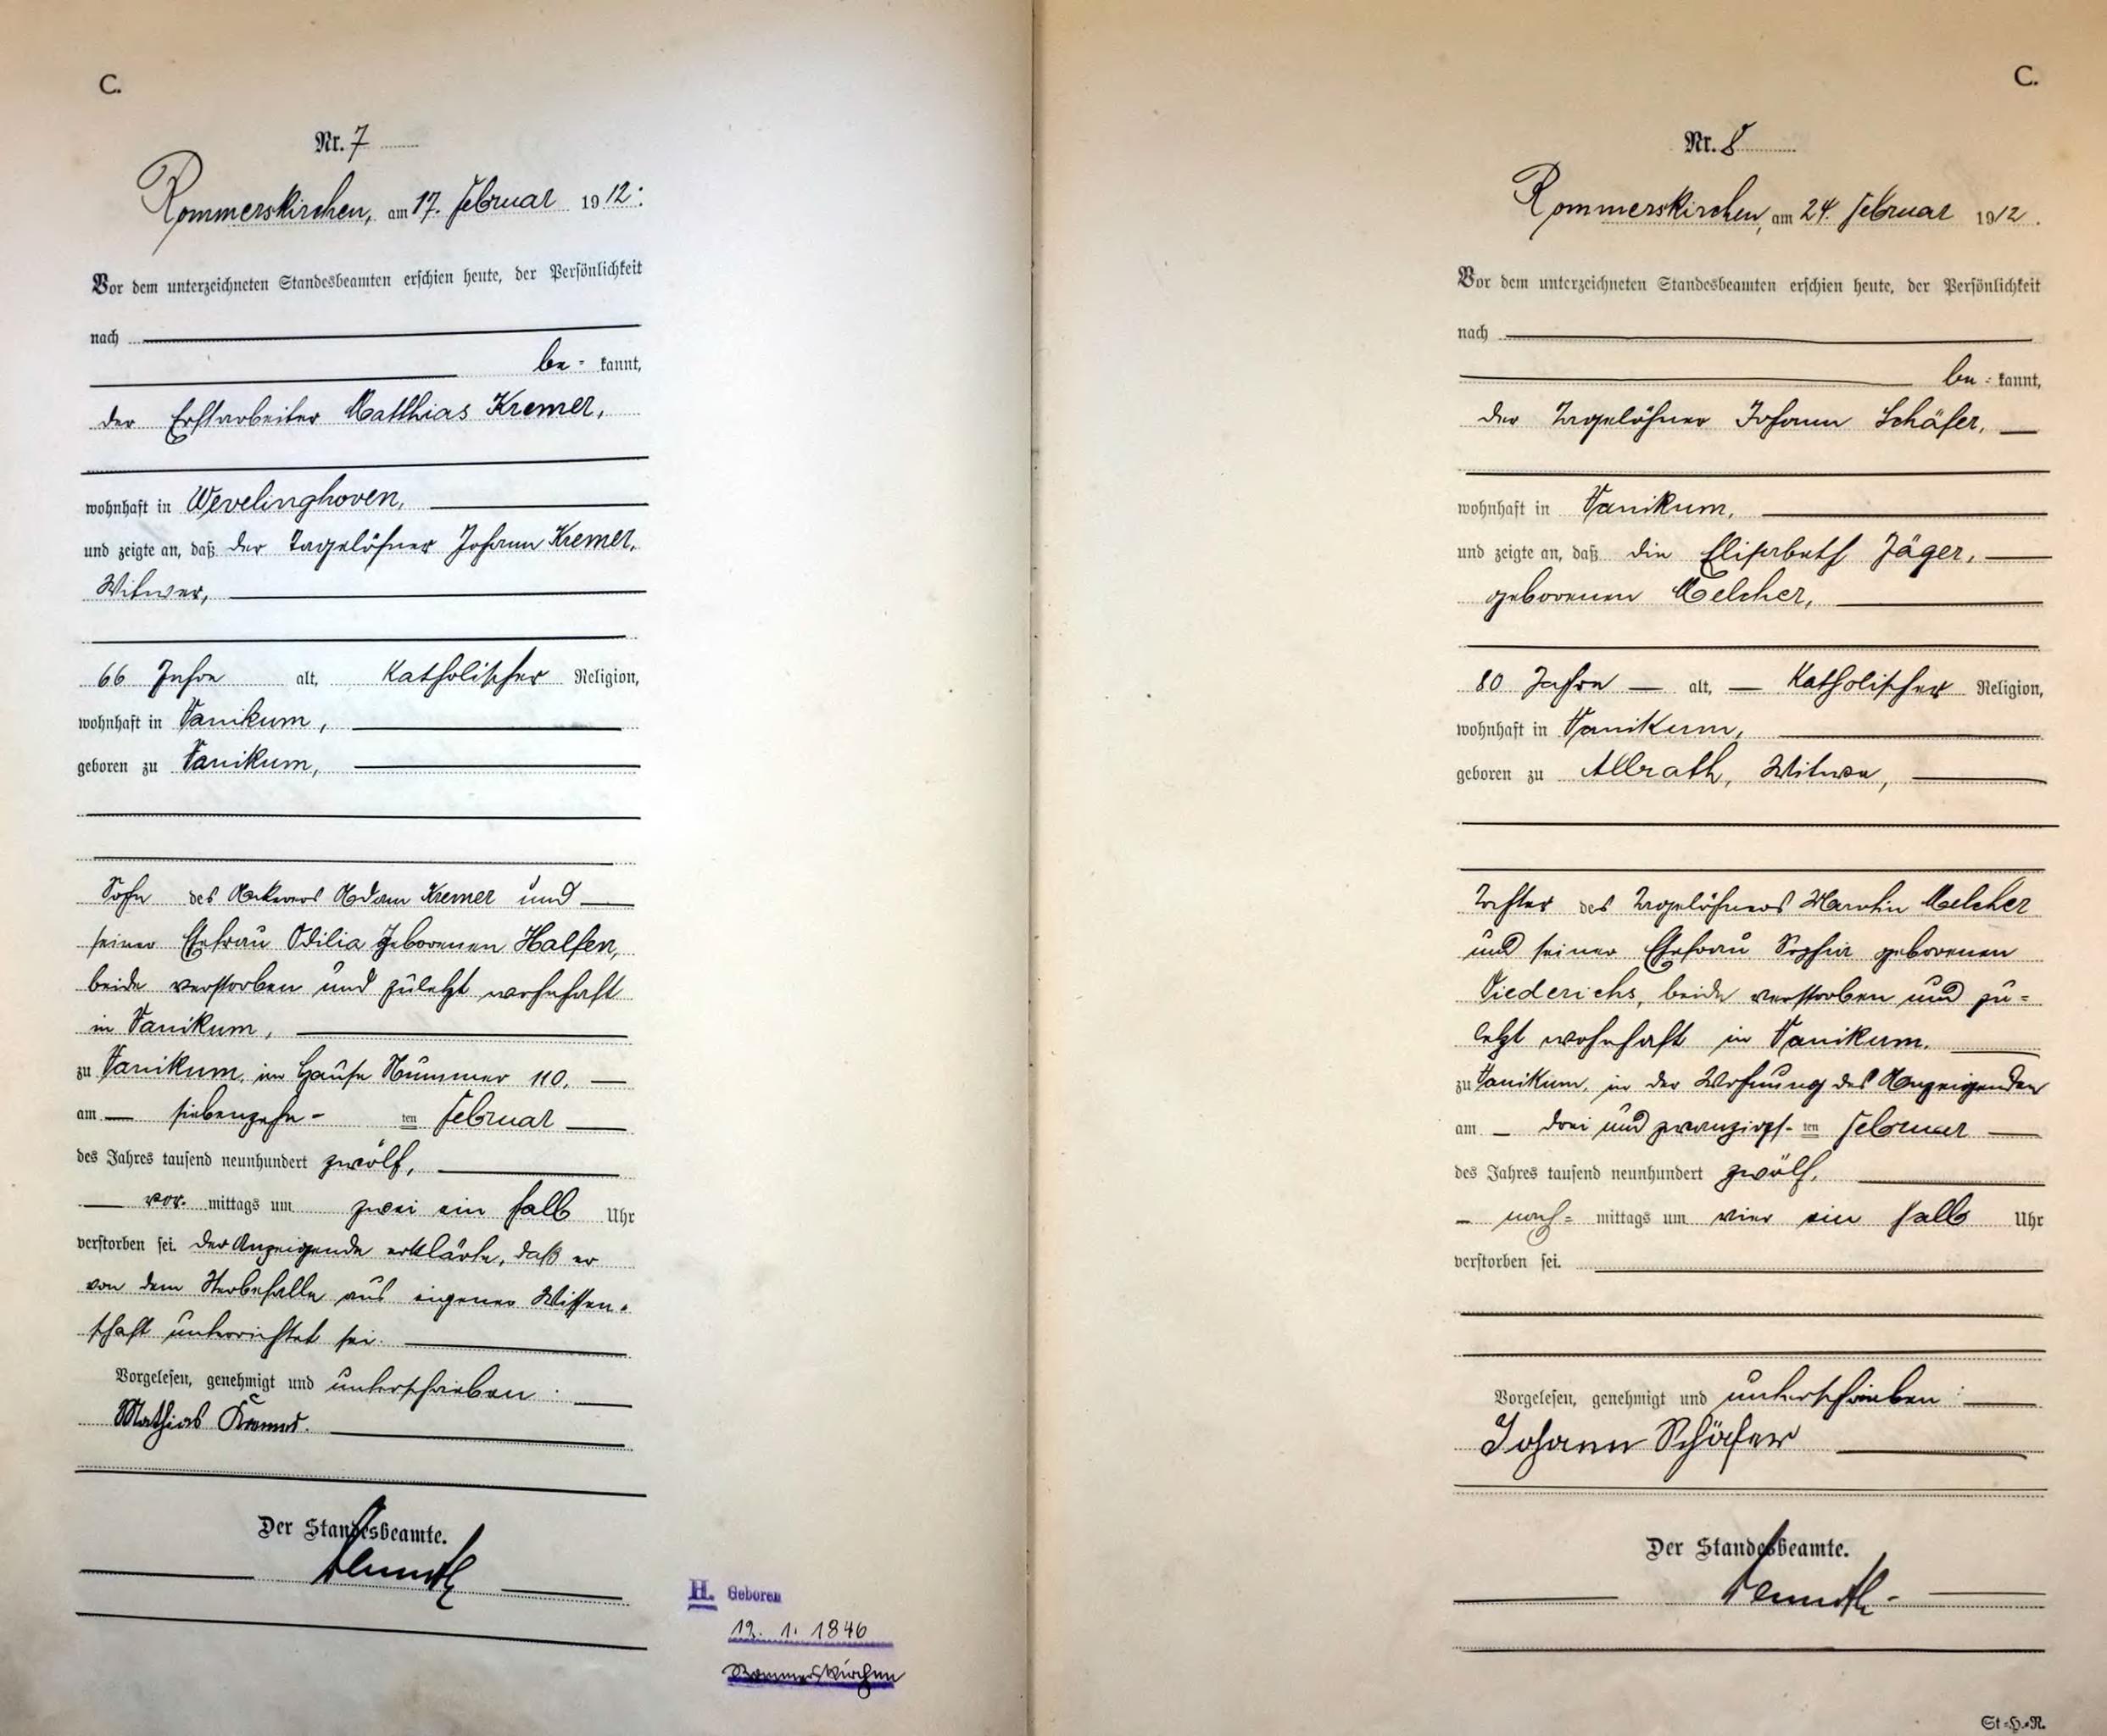 C.
Nr. 7
Rommerskirchen, am 17. Februar 1912.
Vor dem unterzeichneten Standesbeamten erschien heute, der Persönlichkeit
nach
be- kannt,
der Erstarbeiter Matthias Kremer,
wohnhaft in Wevelinghoven,
und zeigte an, daß der Tagelöhner Johann Kremer,
Witwer,
66 Jahre alt, Katholischer Religion,
wohnhaft in Vanikum,
geboren zu Vanikum,
Sohn des Ackerers Adam Kremer und
seiner Ehefrau Odilia geborenen Halfen,
beide verstorben und zuletzt wohnhaft
in Vanikum,
zu Vanikum, im Hause Nummer 110,
am siebenzehn- ten Februar
des Jahres tausend neunhundert zwölf,
vor- mittags um zwei ein halb Uhr
verstorben sei. Der Anzeigende erklärte, daß er
von dem Sterbefalle aus eigener Wissen-
schaft unterrichtet sei.
Vorgelesen, genehmigt und unterschrieben:
Mathias Kremer.
Der Standesbeamte.
H. Geboren
12. 1. 1846
Rommerskirchen
C.
Nr. 8
Rommerskirchen, am 24. Februar 1912.
Vor dem unterzeichneten Standesbeamten erschien heute, der Persönlichkeit
nach
be- kannt,
der Tagelöhner Johann Schäfer,
wohnhaft in Vanikum,
und zeigte an, daß die Elisabeth Jäger,
geborenen Melcher,
80 Jahre alt, Katholischer Religion,
wohnhaft in Vanikum,
geboren zu Allrath, Witwe,
Tochter des Tagelöhners Martin Melcher
und seiner Ehefrau Sophia geborenen
Diederichs, beide verstorben und zu-
letzt wohnhaft in Vanikum.
zu Vanikum, in der Wohnung des Anzeigenden
am drei und zwanzigs- ten Februar
des Jahres tausend neunhundert zwölf,
nach- mittags um vier ein halb Uhr
verstorben sei.
Vorgelesen, genehmigt und unterschrieben:
Johann Schäfer
Der Standesbeamte.
St.-H.-R.